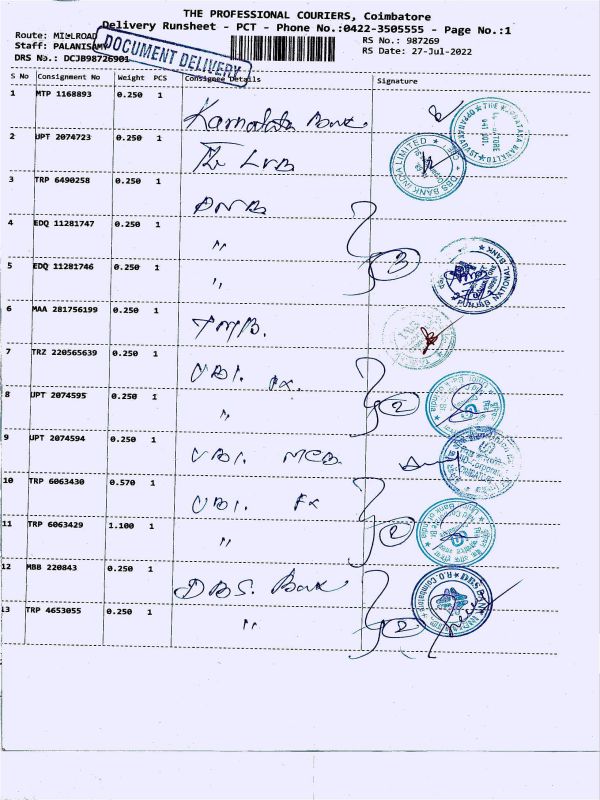 THE PROFESSIONAL COURIERS, Coimbatore
Delivery Runsheet - PCT - Phone No.:0422-3505555 - Page No.:1
Route: MILLROAD
RS No.: 987269
Staff: PALANISAMY
RS Date: 27-Jul-2022
DRS No.: DCJB98726901
DOCUMENT DELIVERY
S No Consignment No Weight PCS Consignee Details Signature
1 MTP 1168893 0.250 1 Karnataka Bank
2 UPT 2074723 0.250 1 The LVB
3 TRP 6490258 0.250 1 PNB
4 EDQ 11281747 0.250 1 "
5 EDQ 11281746 0.250 1 " 3
6 MAA 281756199 0.250 1 TMB.
7 TRZ 220565639 0.250 1 UBI. Fx.
8 UPT 2074595 0.250 1 " 2
9 UPT 2074594 0.250 1 UBI. MCB.
10 TRP 6063430 0.570 1 UBI. Fx
11 TRP 6063429 1.100 1 " 2
12 MBB 220843 0.250 1 DBS. Bank
13 TRP 4653055 0.250 1 " 2
DBS BANK INDIA LIMITED
PUNJAB NATIONAL BANK